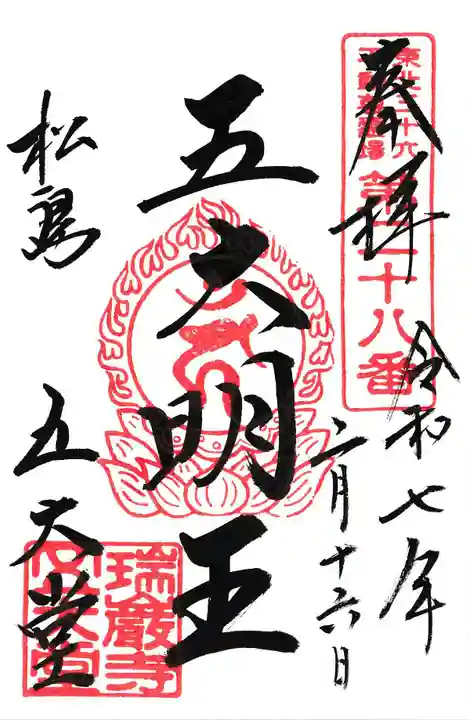 奉拝
東北三十六
不動尊霊場
第二十八番
令和七年
二月十六日
五大明王
松島
五大堂
瑞巌寺
五大堂